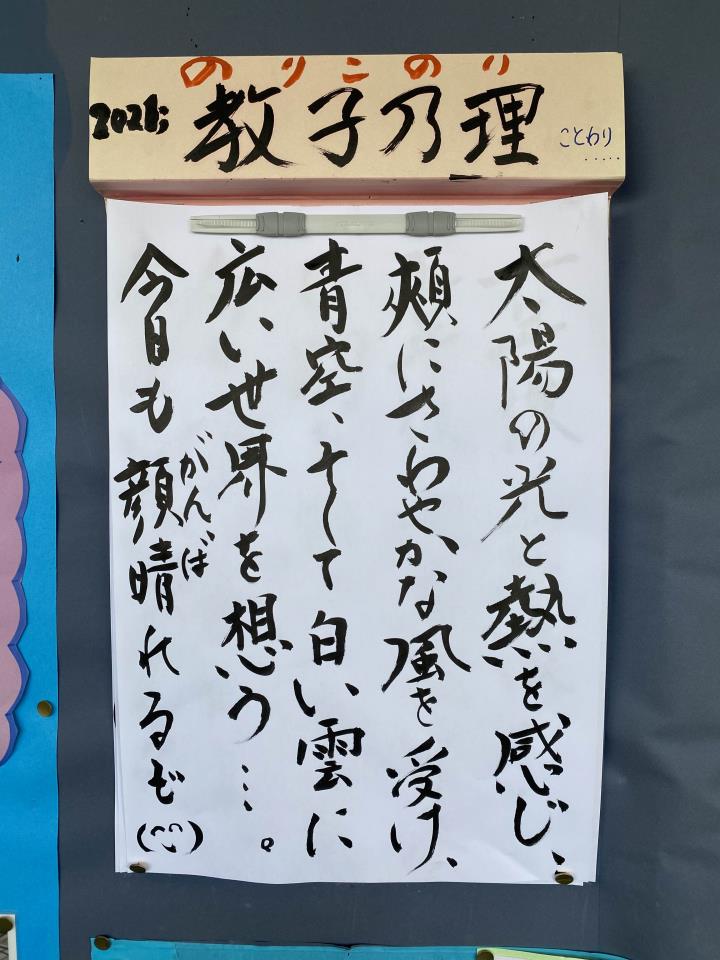 のりこのり
2021;
教子乃理
ことわり
太陽の光と熱を感じ、
頬にさわやかな風を受け、
青空、そして白い雲に
広い世界を想う…。
今日も顔晴れるぞ(^^)
がんば